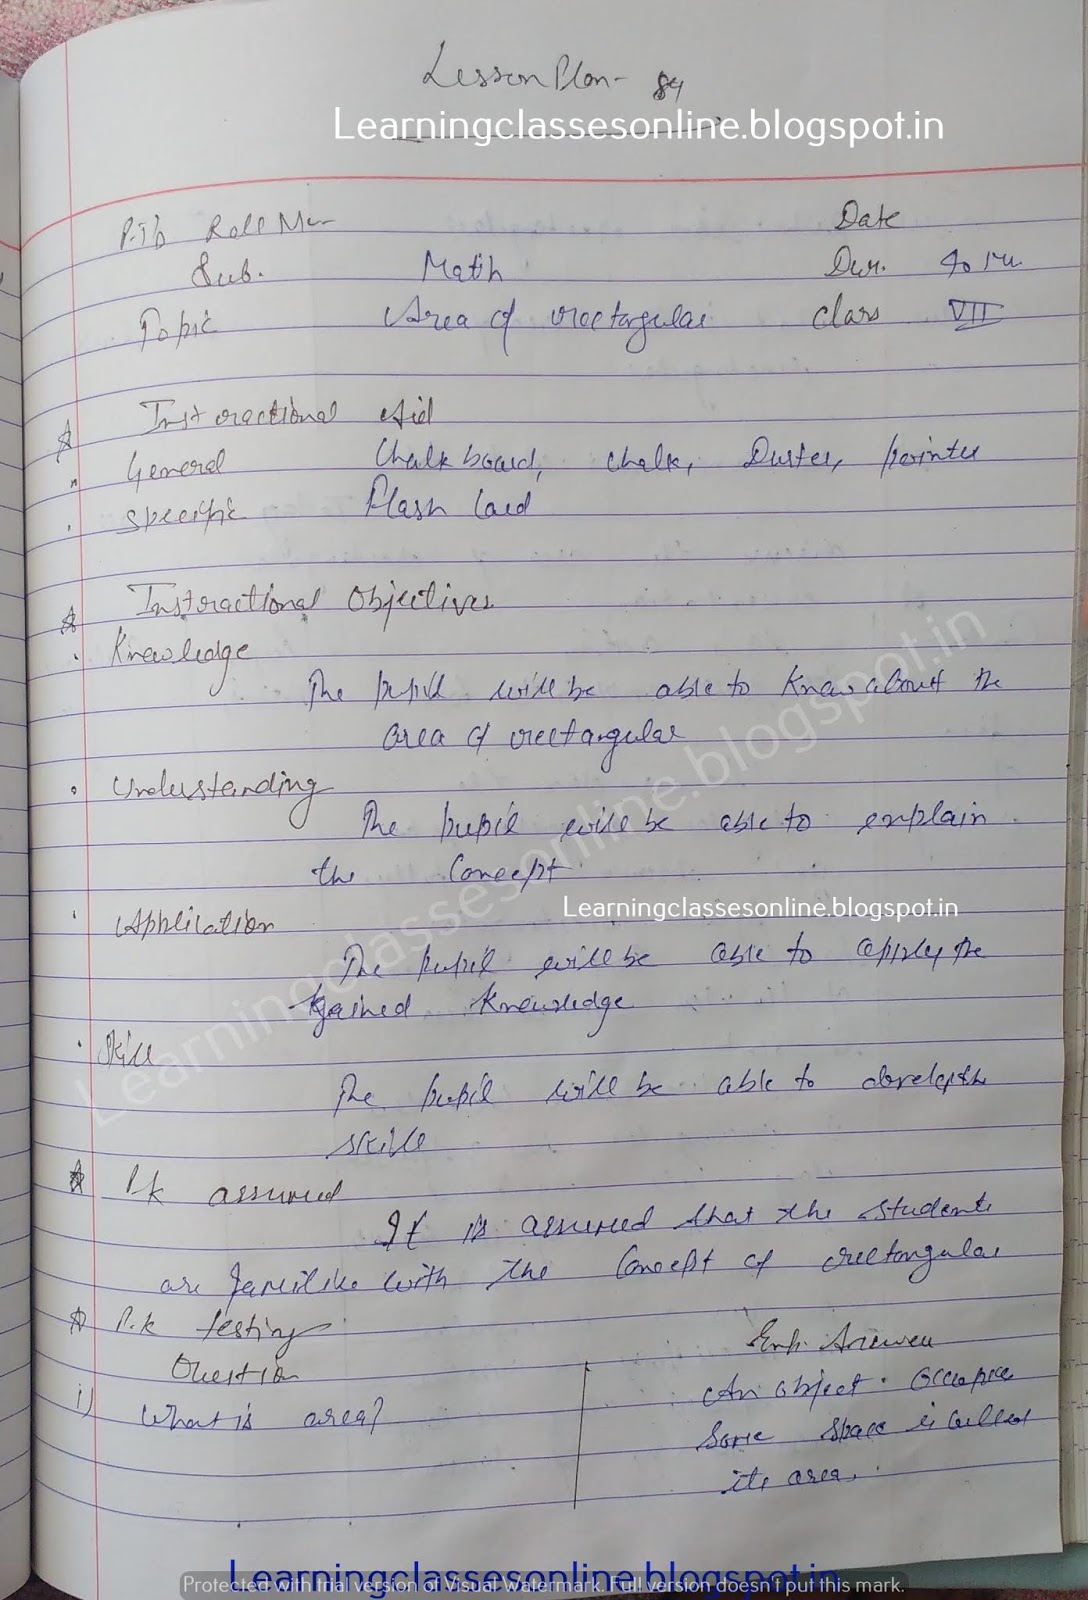 Lesson Plan- 84
Learningclassesonline.blogspot.in
P.Tb Roll No Date
Sub. Math Dur. 40 Mi.
Topic Area of rectangular Class VII
Instractional Aid
General Chalkboard, chalk, Duster, pointer
Specific Flash Card
Instractional Objectives
Knowledge
The pupil will be able to Know about the
area of rectangular
Understanding
The pupil will be able to explain
the Concept.
Learningclassesonline.blogspot.in
Learningclassesonline.blogspot.in
Application
The pupil will be able to apply the
gained Knowledge
Skill
The pupil will be able to develop the
skill
P.k assumed
It is assumed that the students
are familike with the Concept of rectangular
P.k testing
Question Exp. Answer
i) What is area? An object occupies
Some space is called
its area.
Learningclassesonline.blogspot.in
Protected with trial version of Visual Watermark. Full version doesn't put this mark.